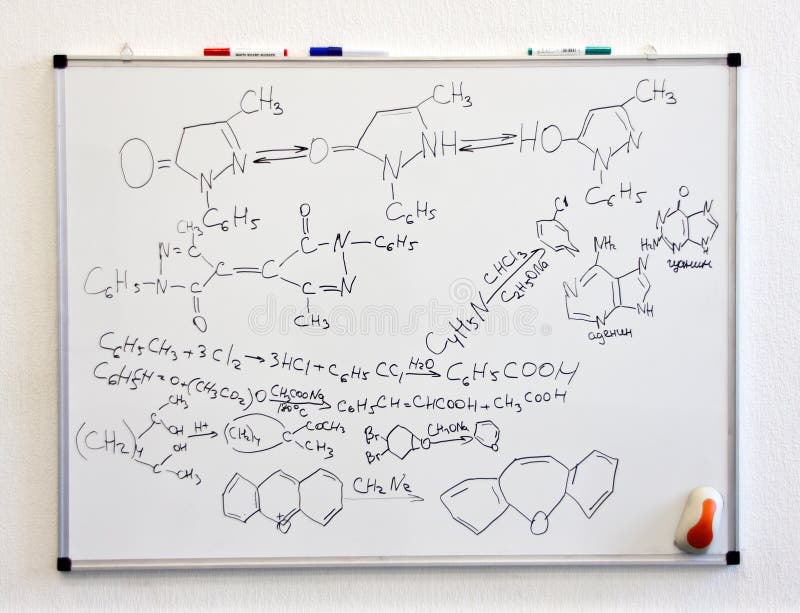 CH3
O= N N C6H5 ⇌ O= N NH C6H5 CH3 ⇌ HO N N C6H5 CH3
CH3 N=C C6H5-N-N C O C=C O C-N-C6H5 C=N CH3
C4H5N CHCl3 C2H5ONa Cl N
NH2 N N N NH аденин
O N H2N N N NH гуанин
C6H5CH3 + 3Cl2 → 3HCl + C6H5CCl H2O → C6H5COOH
C6H5CH=O + (CH3CO2)O CH3COONa 180°C → C6H5CH=CHCOOH + CH3COOH
(CH2)4 CH3 OH OH CH3 H+ → (CH2)4 C COCH3 CH3
Br Br O CH3ONa → O
O + CH2N2 → O
dreamstime